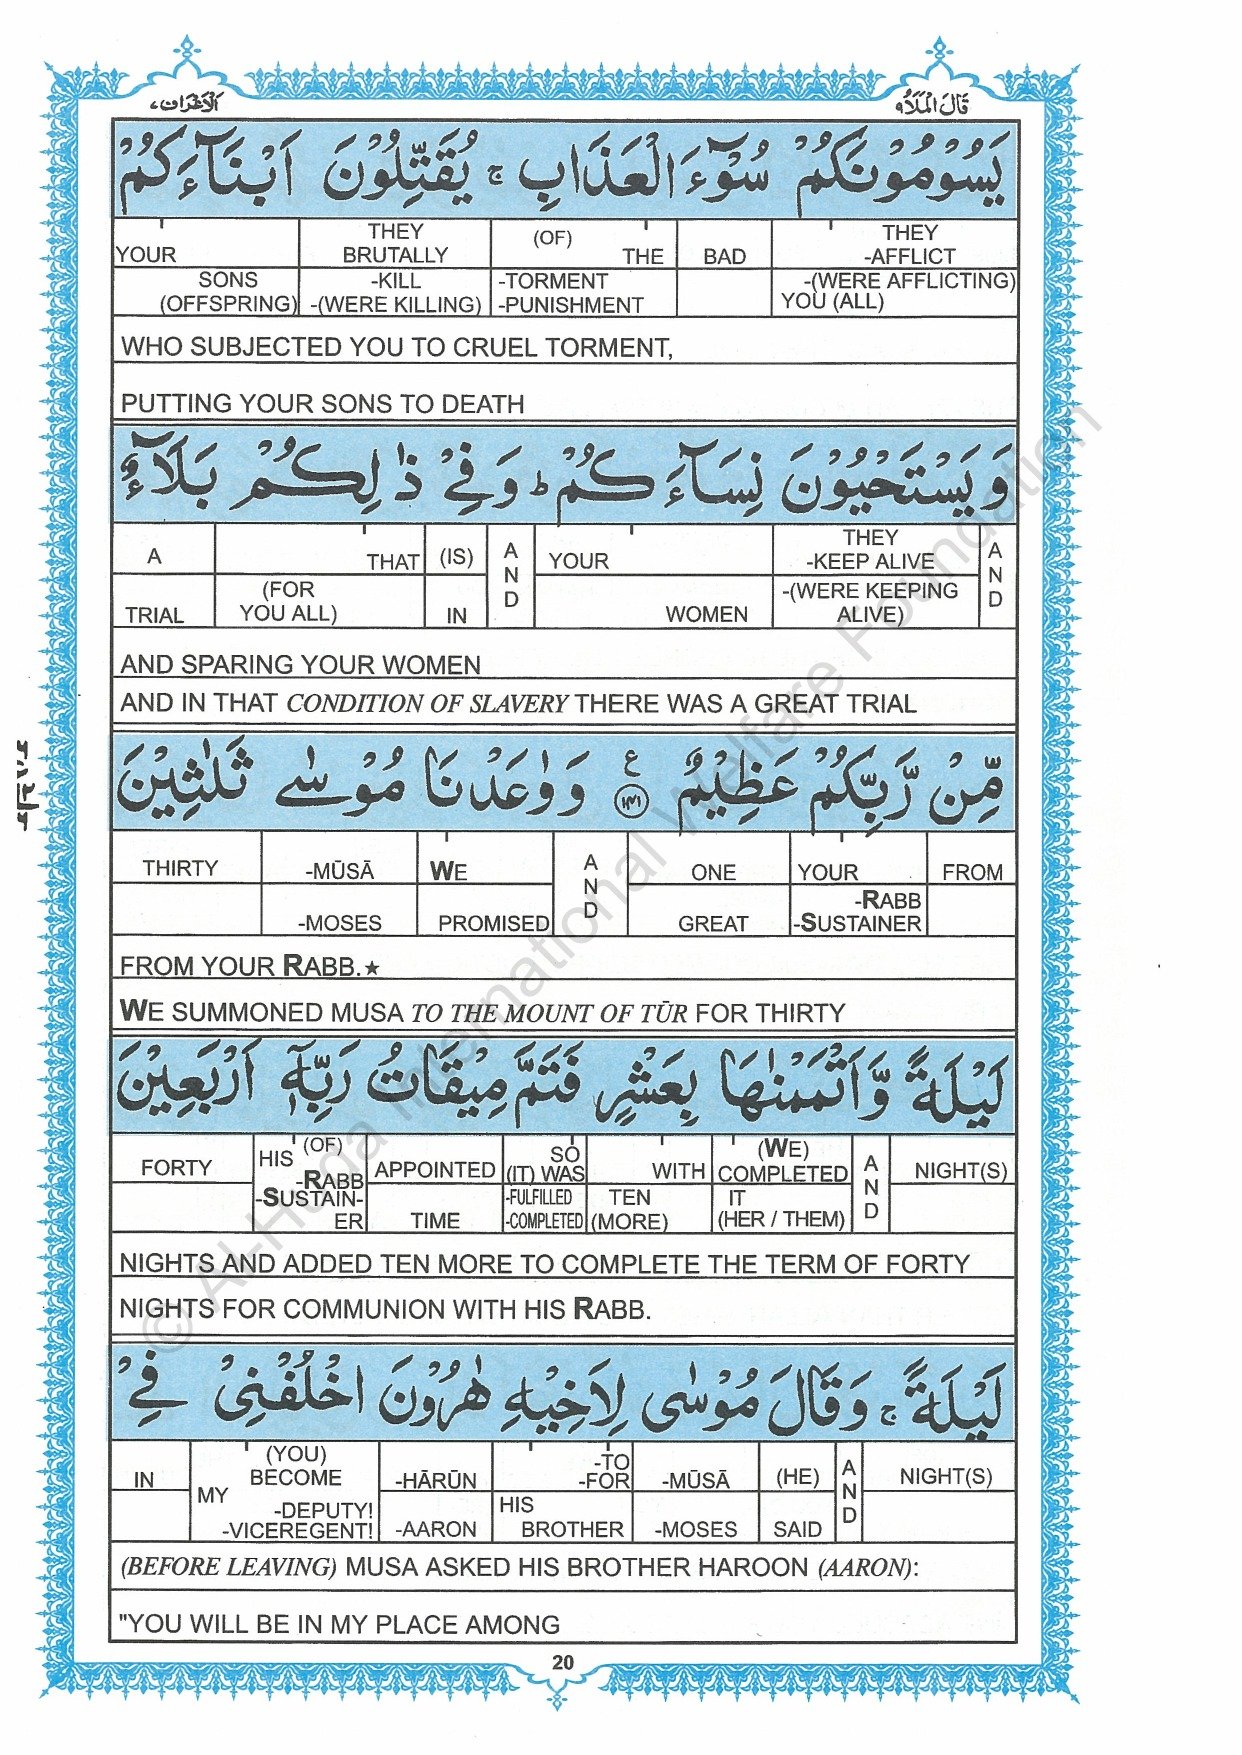 قَالَ الْمَلَاُ ٩
اَلْاَعْرَاف ٧
يَسُوْمُوْنَكُمْ سُوْٓءَ الْعَذَابِ ۚ يُقَتِّلُوْنَ اَبْنَآءَكُمْ
YOUR THEY BRUTALLY (OF) THE BAD THEY -AFFLICT
SONS (OFFSPRING) -KILL -(WERE KILLING) -TORMENT -PUNISHMENT -(WERE AFFLICTING) YOU (ALL)
WHO SUBJECTED YOU TO CRUEL TORMENT,
PUTTING YOUR SONS TO DEATH
وَ يَسْتَحْيُوْنَ نِسَآءَكُمْ ؕ وَ فِيْ ذٰلِكُمْ بَلَآءٌ
A THAT (IS) AND YOUR THEY -KEEP ALIVE AND
TRIAL (FOR YOU ALL) IN WOMEN -(WERE KEEPING ALIVE)
AND SPARING YOUR WOMEN
AND IN THAT CONDITION OF SLAVERY THERE WAS A GREAT TRIAL
مِّنْ رَّبِّكُمْ عَظِيْمٌ ع ١٤١ وَ وٰعَدْنَا مُوْسٰى ثَلٰثِيْنَ
THIRTY -MŪSĀ WE AND ONE YOUR FROM
-MOSES PROMISED GREAT -RABB -SUSTAINER
FROM YOUR RABB.★
WE SUMMONED MUSA TO THE MOUNT OF TŪR FOR THIRTY
لَيْلَةً وَّ اَتْمَمْنٰهَا بِعَشْرٍ فَتَمَّ مِيْقَاتُ رَبِّهٖٓ اَرْبَعِيْنَ
FORTY HIS (OF) -RABB -SUSTAIN-ER APPOINTED SO (IT) WAS WITH (WE) COMPLETED AND NIGHT(S)
TIME -FULFILLED -COMPLETED TEN (MORE) IT (HER / THEM)
NIGHTS AND ADDED TEN MORE TO COMPLETE THE TERM OF FORTY
NIGHTS FOR COMMUNION WITH HIS RABB.
لَيْلَةً ۚ وَ قَالَ مُوْسٰى لِاَخِيْهِ هٰرُوْنَ اخْلُفْنِيْ فِيْ
IN MY (YOU) BECOME -HĀRŪN -TO -FOR -MŪSĀ (HE) AND NIGHT(S)
-DEPUTY! -VICEREGENT! -AARON HIS BROTHER -MOSES SAID
(BEFORE LEAVING) MUSA ASKED HIS BROTHER HAROON (AARON):
"YOU WILL BE IN MY PLACE AMONG
20
© Al-Huda International Welfare Foundation